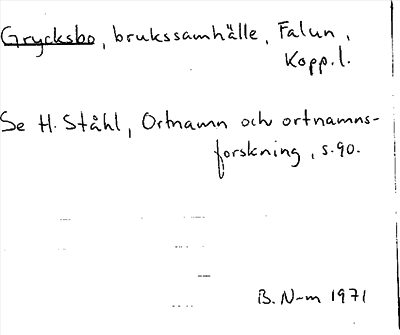 Grycksbo, brukssamhälle, Falun,
Kopp.l.
Se H. Ståhl, Ortnamn och ortnamns-
forskning, s.90.
B. N-m 1971